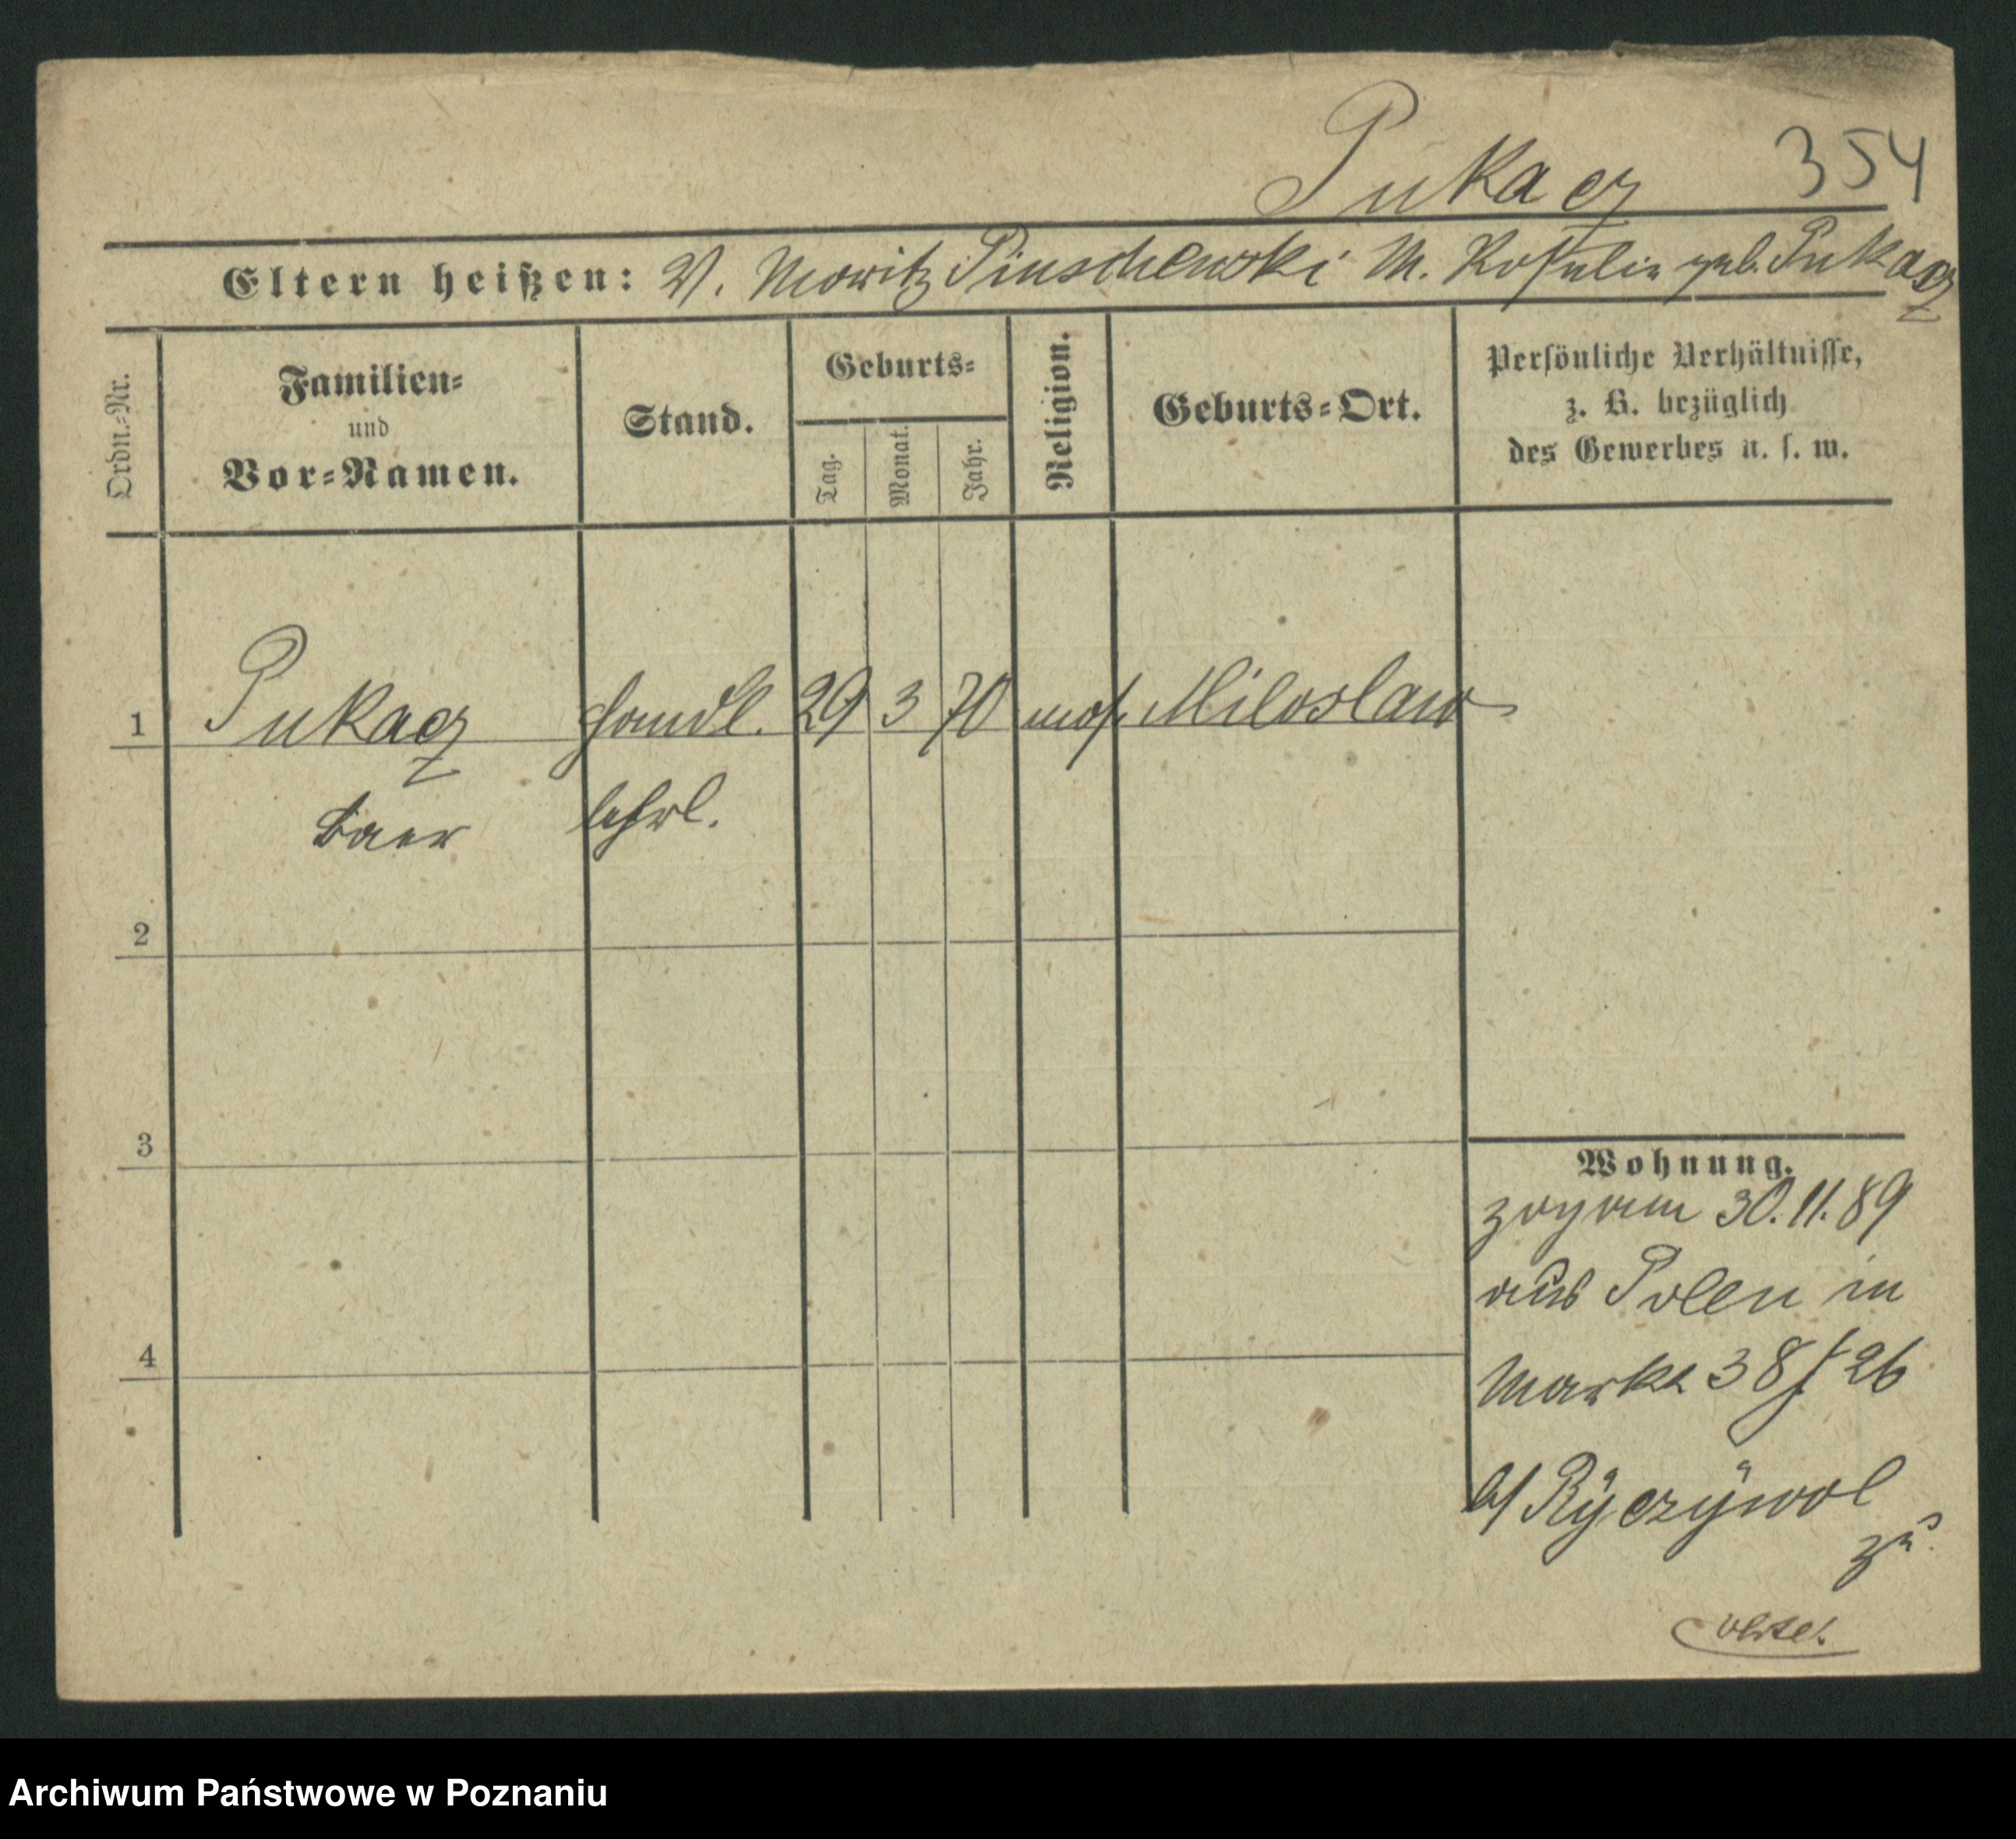 Pukacz 354
Eltern heißen: V. Moritz Pinschewski M. Rosalie geb. Pukacz
Ordn.-Nr.
Familien-
und
Vor-Namen.
Stand.
Geburts-
Tag.
Monat.
Jahr.
Religion.
Geburts-Ort.
Persönliche Verhältnisse,
z. B. bezüglich
des Gewerbes u. s. w.
1 Pukacz Handl. 29 3 70 mos. Miloslaw
Baer lehrl.
2
3
4
Wohnung.
zog am 30.11.89
aus Polen in
Markt 38 f 26
b/ Ryczywol
zu.
Archiwum Państwowe w Poznaniu